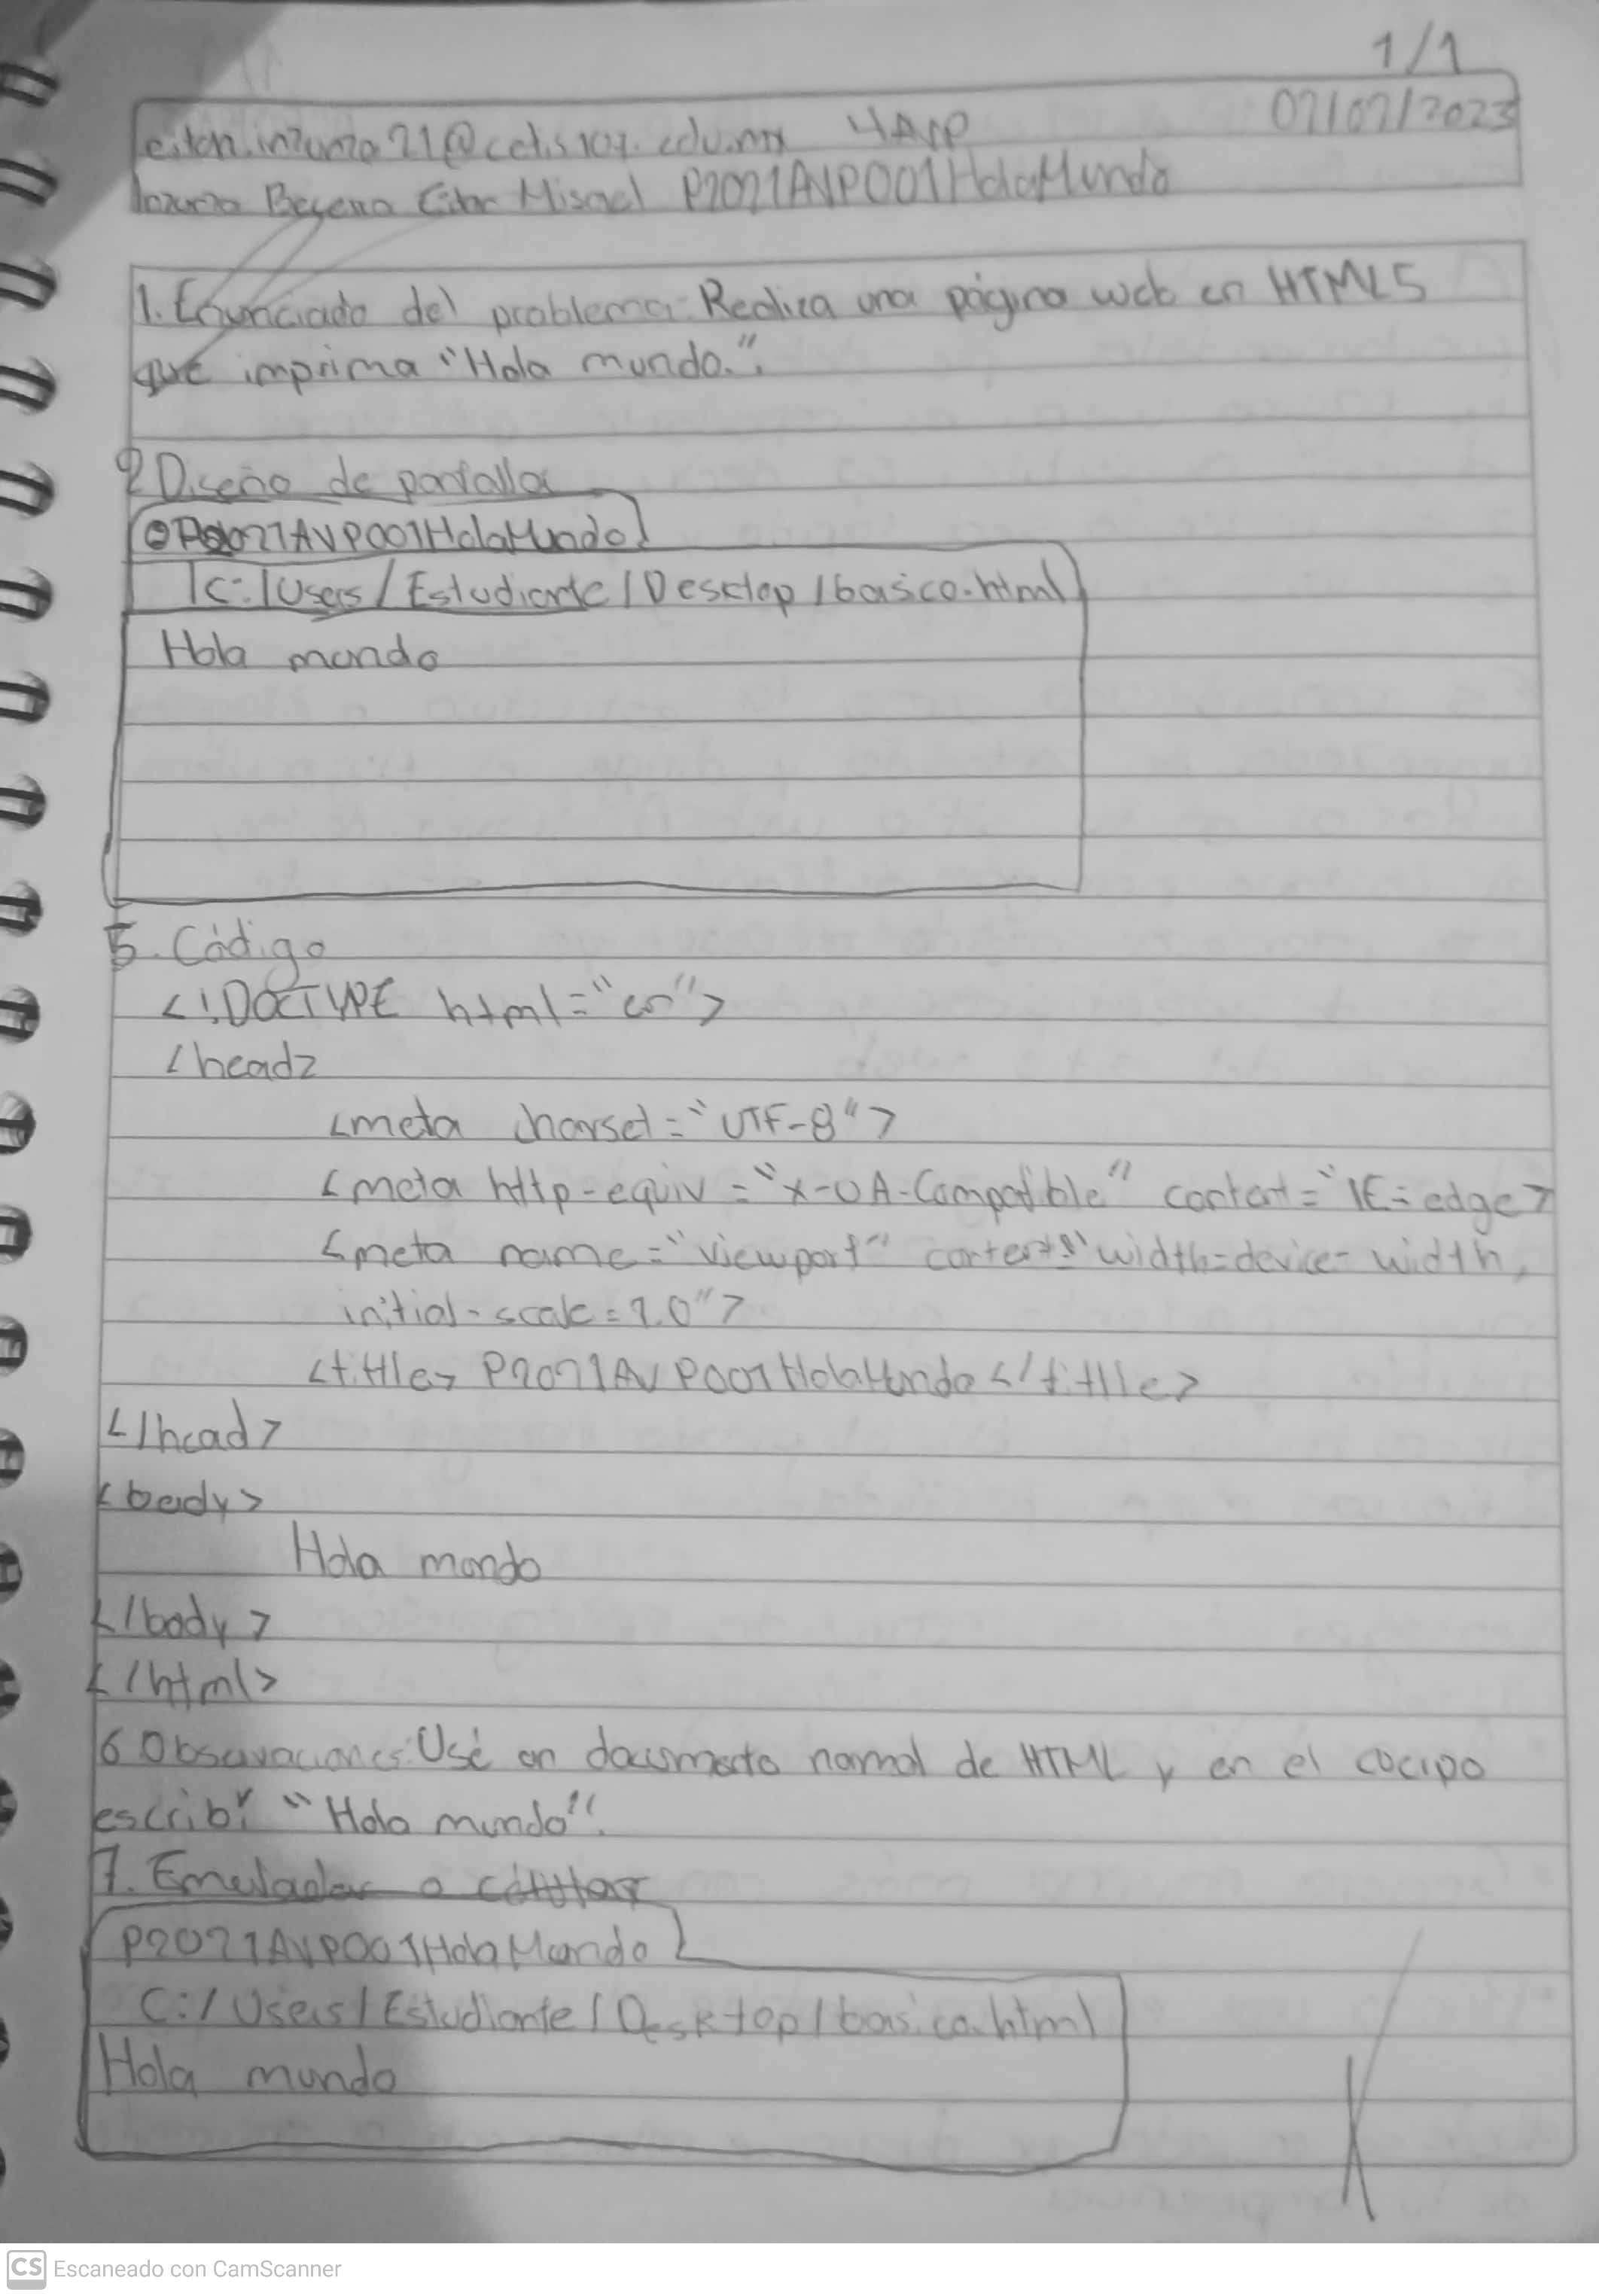 1/1
eitan.inzunza21@cetis107.edu.mx 4AVP 07/07/2023
Inzunza Becerra Eitan Misael P2021AVP001HolaMundo
1. Enunciado del problema: Realiza una página web en HTML5
que imprima "Hola mundo.".
2 Diseño de pantalla
P2021AVP001HolaMundo
C:/Users/Estudiante/Desktop/basico.html
Hola mundo
5. Código
<!DOCTYPE html="en">
<head>
<meta charset="UTF-8">
<meta http-equiv="X-UA-Compatible" content="IE=edge>
<meta name="viewport" content="width=device-width,
initial-scale=1.0">
<title> P2021AVP001HolaMundo </title>
</head>
<body>
Hola mundo
</body>
</html>
6 Observaciones: Usé un documento normal de HTML y en el
escribí "Hola mundo".
7. Emulador o celular
P2021AVP001HolaMundo
C:/Users/Estudiante/Desktop/basico.html
Hola mundo
CS Escaneado con CamScanner